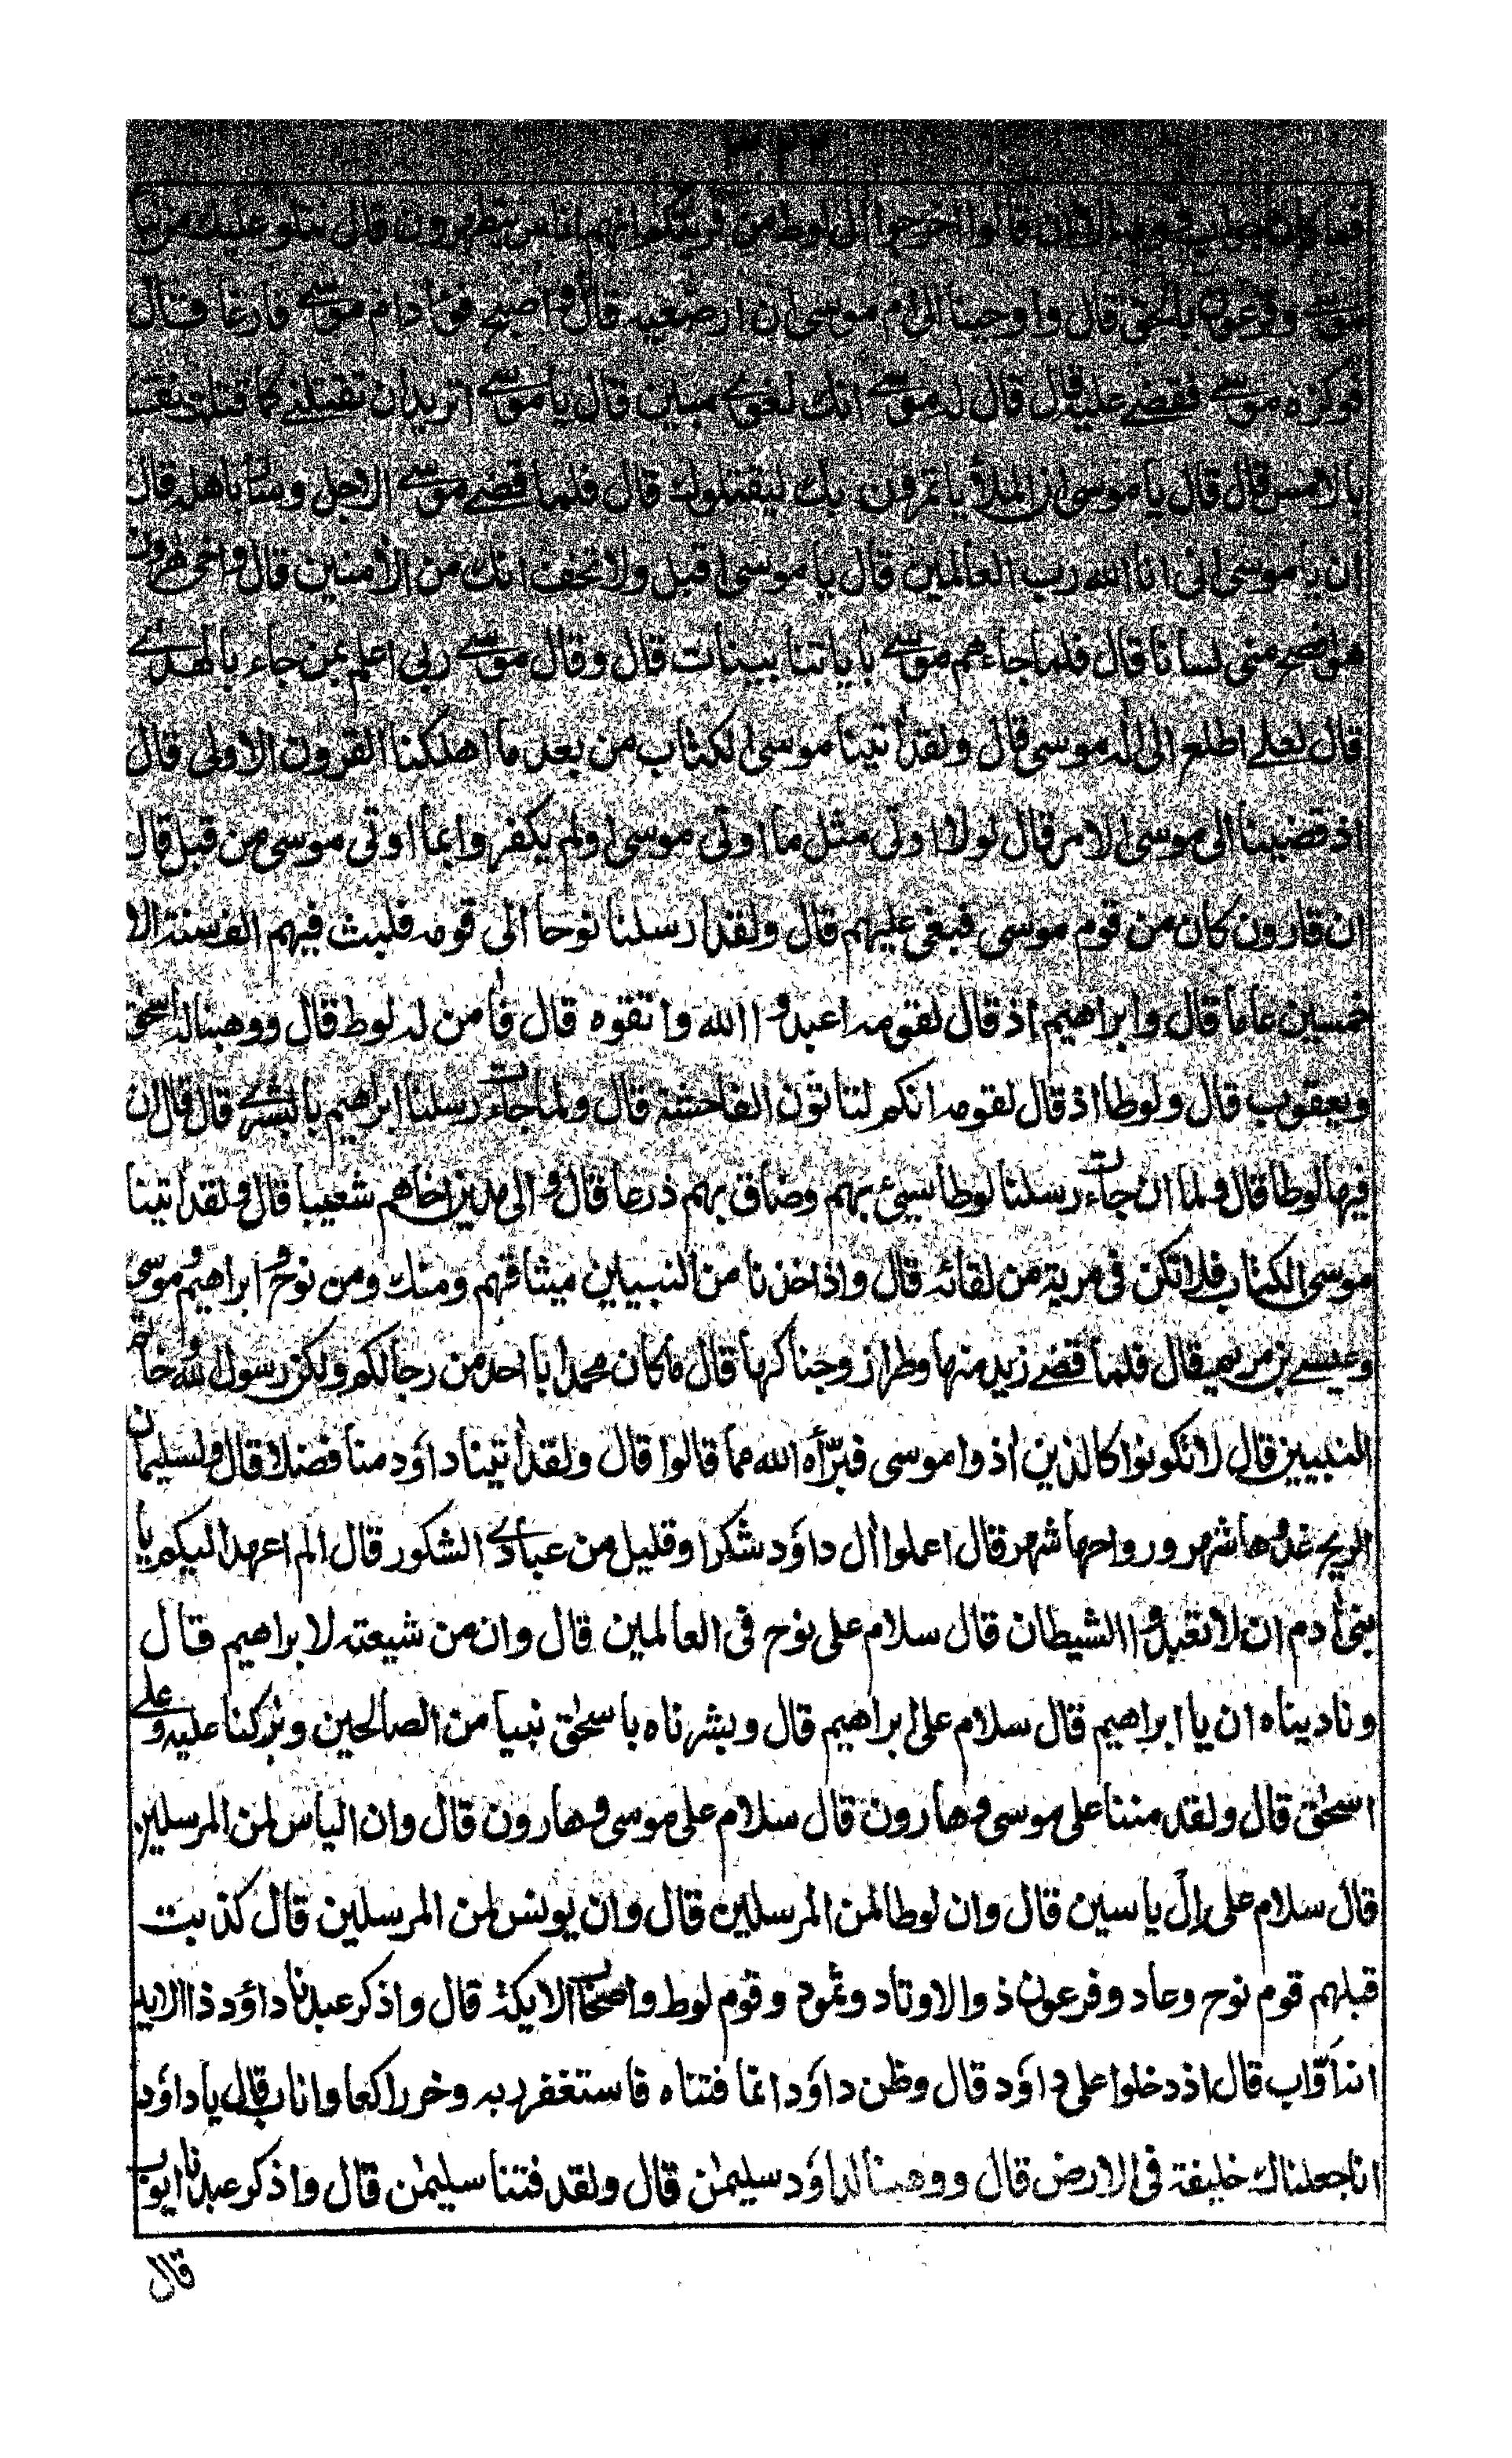 فما كان جواب قومه الا ان قالوا اخرجوا ال لوط من قريتكم انهم اناس يتطهرون قال نتلو عليك من نبا
موسے وفرعون بالحق قال واوحينا الى ام موسى ان ارضعيه قال واصبح فؤاد ام موسے فارغا قال
فوكزه موسے فقضے عليه قال قال له موسے انك لغوے مبين قال يا موسے اتريد ان تقتلنے كما قتلت نفسا
بالامس قال قال يا موسى ان الملأ ياتمرون بك ليقتلوك قال فلما قضے موسے الاجل وسار باهله قال
ان يا موسى انى انا الله رب العالمين قال يا موسى اقبل ولا تخف انك من الأمنين قال واخى هارون
هو افصح منى لسانا قال فلما جاءهم موسے بأياتنا بينات قال وقال موسے ربى اعلم بمن جاء بالهدے
قال لعلے اطلع الى اله موسى قال ولقد أتينا موسى الكتاب من بعد ما اهلكنا القرون الاولى قال
اذ قضينا الى موسى الامر قال لولا اوتى مثل ما اوتى موسى اولم يكفروا بما اوتى موسى من قبل قال
ان قارون كان من قوم موسى فبغى عليهم قال ولقد ارسلنا نوحا الى قومه فلبث فيهم الف سنة الا
خمسين عاما قال وابراهيم اذ قال لقومه اعبدوا الله واتقوه قال فأمن له لوط قال ووهبنا له اسحق
ويعقوب قال ولوطا اذ قال لقومه انكم لتاتون الفاحشة قال ولما جاءت رسلنا ابراهيم بالبشرے قال قال ان
فيها لوطا قال ولما ان جاءت رسلنا لوطا سيئ بهم وضاق بهم ذرعا قال والى مدين اخاهم شعيبا قال ولقد أتينا
موسى الكتاب فلا تكن فى مرية من لقائه قال واذ اخذنا من النبيين ميثاقهم ومنك ومن نوح وابراهيم وموسى
وعيسے بن مريم قال فلما قضے زيد منها وطرا زوجناكها قال ما كان محمد ابا احد من رجالكم ولكن رسول الله وخاتم
النبيين قال لا تكونوا كالذين اذوا موسى فبرّأه الله مما قالوا قال ولقد أتينا داؤد منا فضلا قال ولسليمان
الريح غدوها شهر ورواحها شهر قال اعملوا أل داؤد شكرا وقليل من عبادے الشكور قال الم اعهد اليكم يا
بنى أدم ان لا تعبدوا الشيطان قال سلام على نوح فى العالمين قال وان من شيعته لابراهيم قال
وناديناه ان يا ابراهيم قال سلام على ابراهيم قال وبشرناه باسحق نبيا من الصالحين وبركنا عليه وعلے
اسحق قال ولقد مننا على موسى وهارون قال سلام على موسى وهارون قال وان الياس لمن المرسلين
قال سلام على إل ياسين قال وان لوطا لمن المرسلين قال وان يونس لمن المرسلين قال كذبت
قبلهم قوم نوح وعاد وفرعون ذو الاوتاد وثمود وقوم لوط واصحاب الايكة قال واذكر عبدنا داؤد ذا الايد
انه أوّاب قال اذ دخلوا على داؤد قال وظن داؤد انما فتناه فاستغفر ربه وخر راكعا واناب قال يا داؤد
انا جعلناك خليفة فى الارض قال ووهبنا لداؤد سليمٰن قال ولقد فتنا سليمٰن قال واذكر عبدنا ايوب
قال